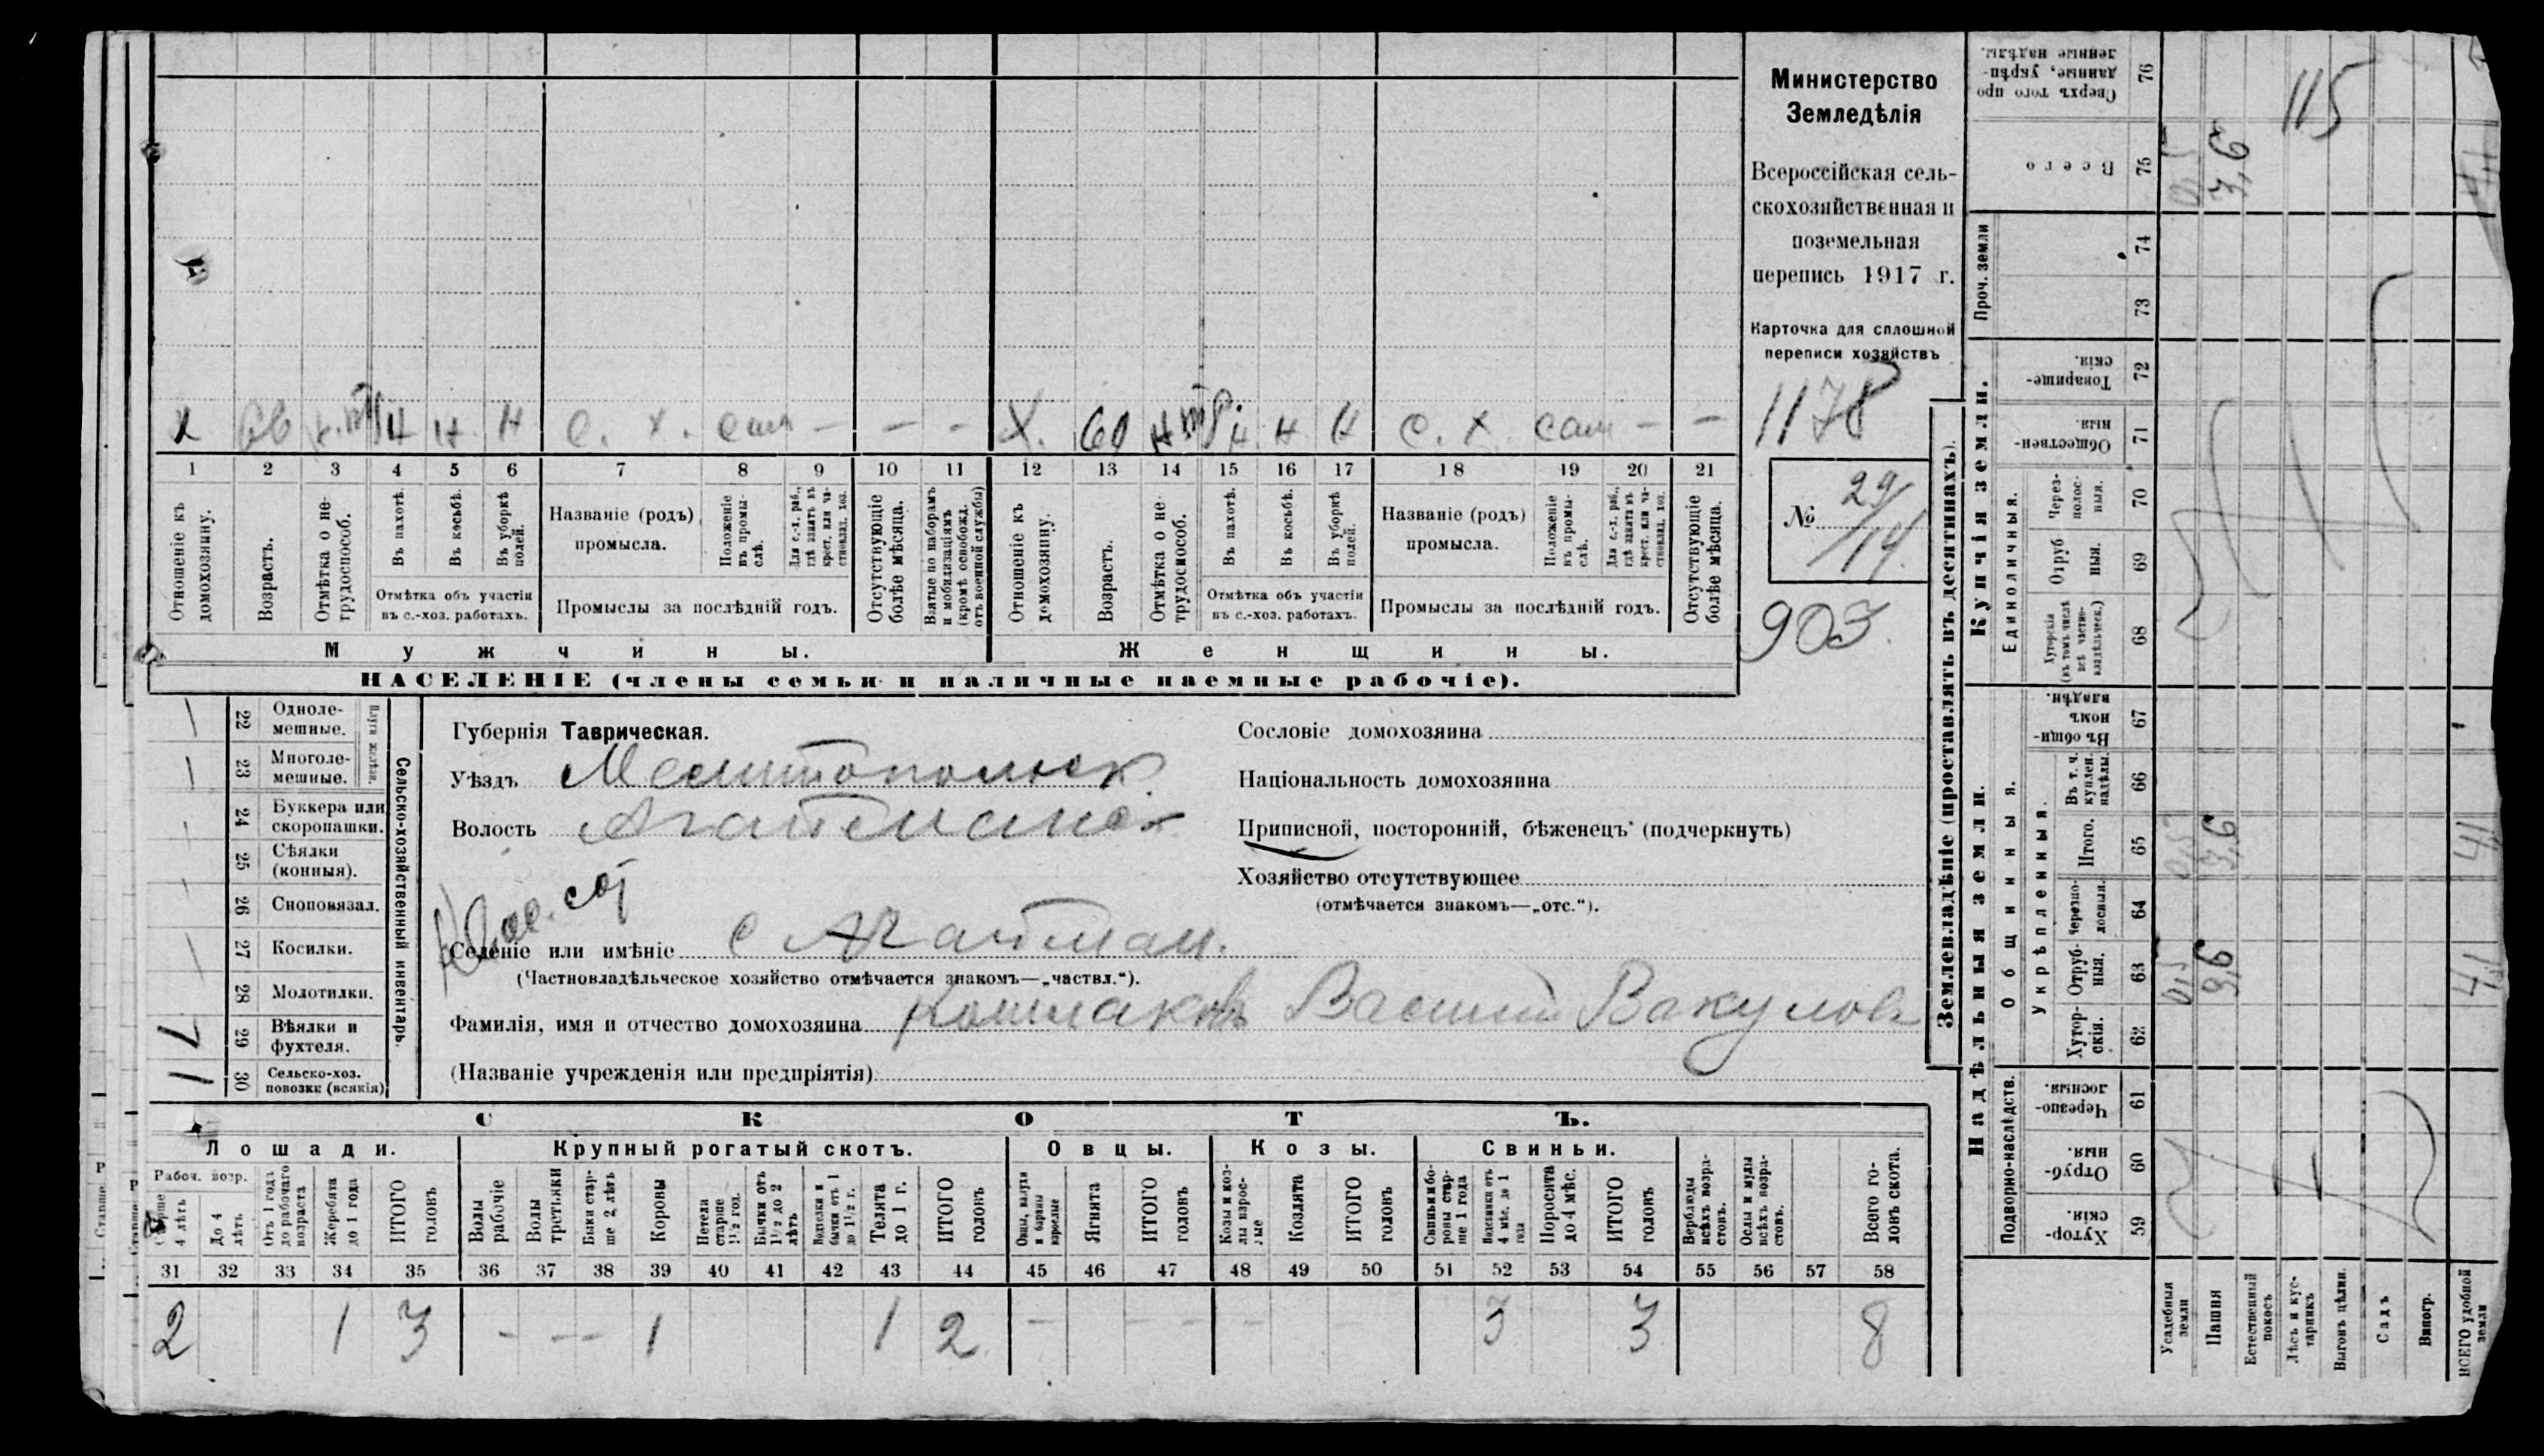 Министерство
Земледѣлія
Всероссійская сель-
скохозяйственная и
поземельная
перепись 1917 г.
Карточка для сплошной
переписи хозяйствъ
1178
№ 29/114.
903.
х н н н с. х. сам — — — х. 60 н. н н с. х. сам — —
1 2 3 4 5 6 7 8 9 10 11 12 13 14 15 16 17 18 19 20 21
Отношеніе къ домохозяину.
Возрастъ.
Отмѣтка о не-трудоспособ.
Въ пахотѣ.
Въ косьбѣ.
Въ уборкѣ полей.
Отмѣтка объ участіи
въ с.-хоз. работахъ.
Названіе (родъ)
промысла.
Положеніе въ промы-слѣ.
Для с.-х. раб., гдѣ занятъ въ крест. или ча-стновлад. хоз.
Промыслы за послѣдній годъ.
Отсутствующіе болѣе мѣсяца.
Взятые по наборамъ и мобилизаціямъ (кромѣ освобожд. отъ военной службы)
Отношеніе къ домохозяину.
Возрастъ.
Отмѣтка о не-трудоспособ.
Въ пахотѣ.
Въ косьбѣ.
Въ уборкѣ полей.
Отмѣтка объ участіи
въ с.-хоз. работахъ.
Названіе (родъ)
промысла.
Положеніе въ промы-слѣ.
Для с.-х. раб., гдѣ занята въ крест. или ча-стновлад. хоз.
Промыслы за послѣдній годъ.
Отсутствующіе болѣе мѣсяца.
Мужчины.
Женщины.
НАСЕЛЕНІЕ (члены семьи и наличные наемные рабочіе).
Сельско-хозяйственный инвентарь.
Плуги желѣзн.
22 Одноле-
мешные.
23 Многоле-
мешные.
24 Буккера или
скоропашки.
25 Сѣялки
(конныя).
26 Сноповязал.
27 Косилки.
28 Молотилки.
29 Вѣялки и
фухтеля.
30 Сельско-хоз.
повозки (всякія)
Губернія Таврическая.
Уѣздъ Мелитопольск
Волость Агайманск
Селеніе или имѣніе с Агайман.
(Частновладѣльческое хозяйство отмѣчается знакомъ—„частвл.“).
Фамилія, имя и отчество домохозяина Кошлаковъ Василий Вакулов
(Названіе учрежденія или предпріятія)
Сословіе домохозяина
Національность домохозяина
Приписной, посторонній, бѣженецъ (подчеркнуть)
Хозяйство отсутствующее
(отмѣчается знакомъ—„отс.“).
СКОТЪ.
Лошади. Крупный рогатый скотъ. Овцы. Козы. Свиньи.
Рабоч. возр.
Старше 4 лѣтъ
До 4 лѣтъ.
Отъ 1 года до рабочаго возраста
Жеребята до 1 года
ИТОГО головъ
Волы рабочіе
Волы третьяки
Быки стар-ше 2 лѣтъ
Коровы
Нетели старше 1½ год.
Бычки отъ 1½ до 2 лѣтъ
Телята до 1 г.
ИТОГО головъ
Ягнята
ИТОГО головъ
Козы и коз-лы взрос-лые
Козлята
ИТОГО головъ
Поросята до 4 мѣс.
ИТОГО головъ
Верблюды всѣхъ возра-стовъ.
Ослы и мулы всѣхъ возра-стовъ.
Всего го-ловъ скота.
31 32 33 34 35 36 37 38 39 40 41 42 43 44 45 46 47 48 49 50 51 52 53 54 55 56 57 58
2 1 3 - - - 1 1 2 - - - - - 3 3 8
Землевладѣніе (проставлять въ десятинахъ).
Надѣльныя земли.
Купчія земли.
Проч. земли
Подворно-наслѣдств.
Общинныя.
Укрѣпленныя.
Единоличныя.
Сверхъ того про данные, укрѣп-ленные надѣлы. 76
Всего 75
74
73
Товарище-скія. 72
Обществен-ныя. 71
Через-полос-ныя. 70
Отруб ныя. 69
Хуторскія (въ томъ числѣ всѣ частно-владѣльческ.) 68
Въ общи-номъ владѣн. 67
Въ т. ч. куплен. надѣлы. 66
Итого. 65
Черезпо-лосныя. 64
Отруб-ныя. 63
Хутор-скія. 62
Черезпо-лосныя. 61
Отруб-ныя. 60
Хутор-скія. 59
Усадебныя земли
Пашня
Естественный покосъ
Лѣсъ и кус-тарникъ
Выгонъ цѣлин.
Садъ
Виногр.
ВСЕГО удобной земли
115
0,5 3,6 4,1
0,5 3,6 4,1
0,5 3,6 4,1